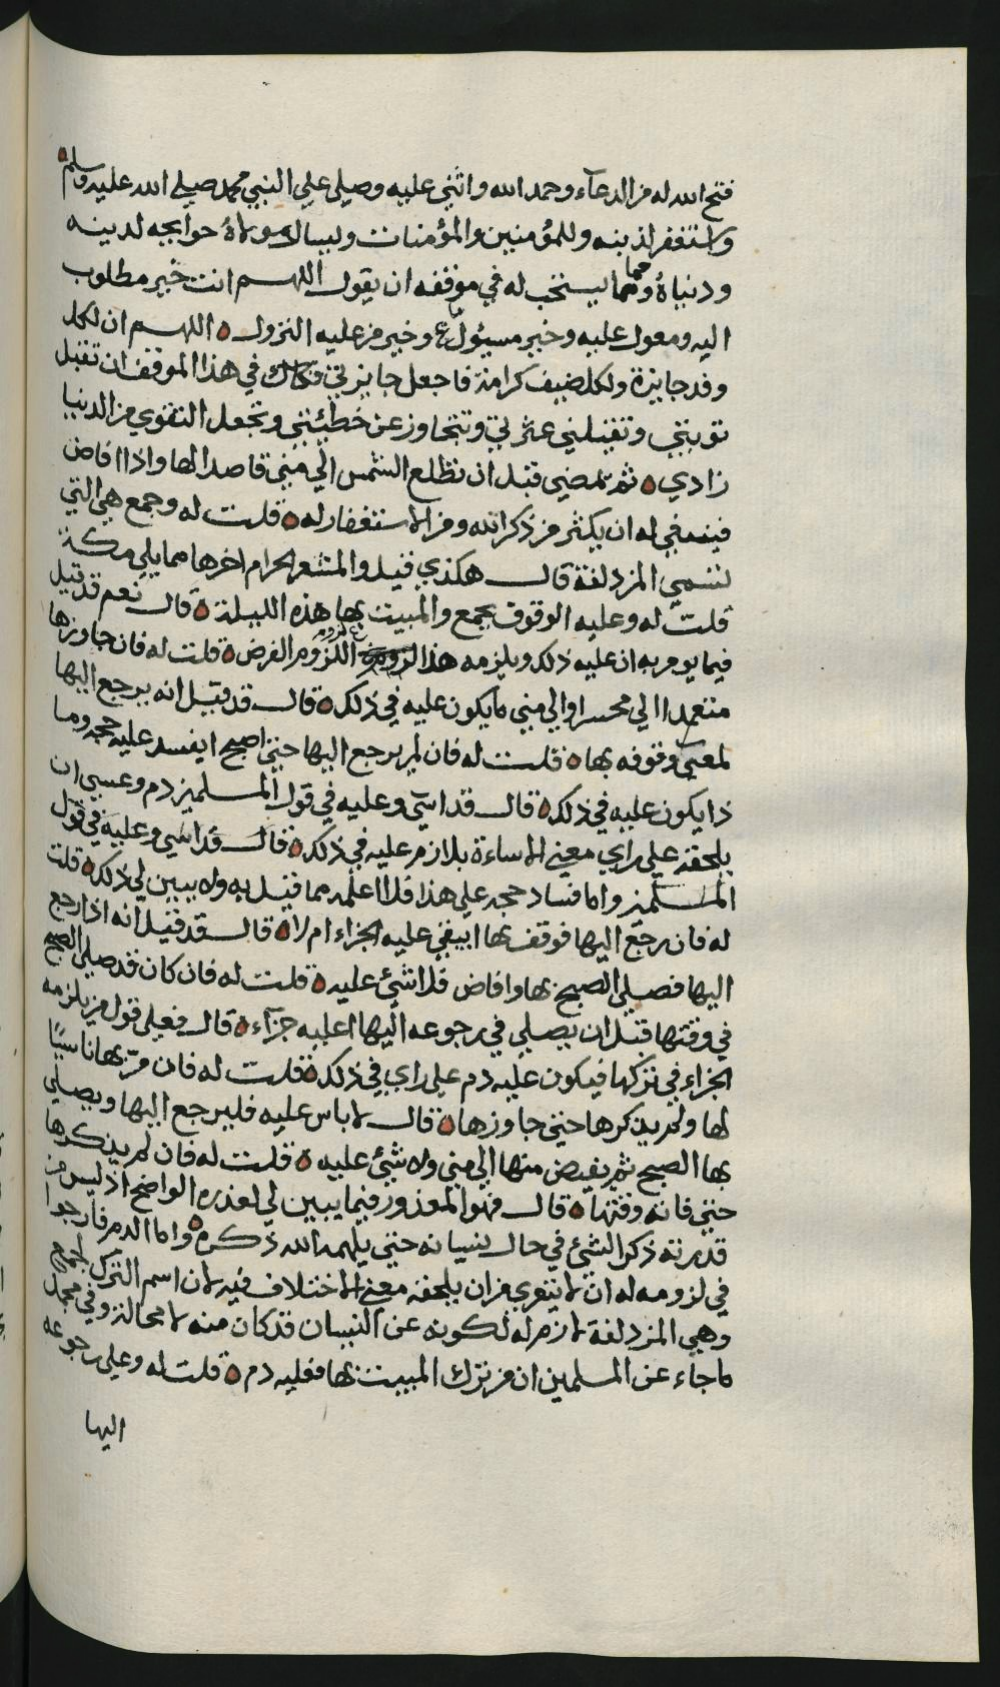 فتح الله له من الدعآء وحمد الله واثني عليه وصلي علي النبي محمد صلي الله عليه وسلم
واستغفر لذنبه وللمؤمنين والمؤمنات وليسال مولاهُ حوايجه لدينه
ودنياهُ ومما يستحب له في موقفه ان يقول اللهم انت خير مطلوب
اليه ومعول عليه وخير مسيُول وخير من عليه النزول ه اللهم ان لكل
وفد جايزة ولكل ضيف كرامة فاجعل جايزتي فكاك في هذا الموقف ان تقبل
توبتي وتقيلني عثرتي وتتجاوز عن خطيئتي وتجعل التقوي من الدنيا
زادي ه ثم تمضي قبل ان تطلع الشمس الي مني قاصدا لها واذا افاض
فينبغي له ان يكثر من ذكر الله ومن الاستغفار له ه قلت له وجمع هي التي
تسمي المزدلفة قال هكذي قيل والمشعر الحرام اخرها مما يلي مكة
قلت له وعليه الوقوف بجمع والمبيت بها هذه الليلة ه قال نعم قد قيل
فيما يومر به ان عليه ذلك ويلزمه هذا لزوم اللزوم الفرض ه قلت له فان جاوزها
متعمدا الي محسر او الي مني ما يكون عليه في ذلك ه قال قد قيل انه يرجع اليها
لمعني وقوفه بها ه قلت له فان لم يرجع اليها حتي اصبح ايفسد عليه حجه وما
ذا يكون عليه في ذلك ه قال قد اسآي وعليه في قول المسلمين دم وعسي ان
يلحقه علي راي معني الاساءة بلا زم عليه في ذلك ه قال قد اسي وعليه في قول
المسلمين واما فساد حجه علي هذا فلا اعلمه مما قيل به ولا يبين لي ذلك ه قلت
له فان رجع اليها فوقف بها ايبقي عليه الجزاء ام لا ه قال قد قيل انه اذا رجع
اليها فصلي الصبح بها وافاض فلا شئ عليه ه قلت له فان كان قد صلي الصبح
في وقتها قبل ان يصلي في رجوعه اليها اعليه جزآء ه قال فعلي قول من يلزمه
الجزاء في تركها فيكون عليه دم علي راي في ذلك ه قلت له فان مرّ بها ناسيًا
لها ولم يذكرها حتي جاوزها ه قال لا باس عليه فليرجع اليها ويصلي
بها الصبح ثم يفيض منها الي مني ولا شئ عليه ه قلت له فان لم يذكرها
حتي فاته وقتها ه قال فهو المعذور فيما يبين لي لعذره الواضح اذ ليس من
قدرته ذكر الشئ في حال نسيانه حتي يلهمه الله ذكره ه واما الدم فارجوا
في لزومه له ان لا يتعري من ان يلحقه معني الاختلاف فيه لان اسم الترك لجمع
وهي المزدلفة لازم له لكونه عن النسيان قد كان منه لا محالة وفي مجمل
ما جاء عن المسلمين ان من ترك المبيت بها فعليه دم ه قلت له وعلي رجوعه
اليها